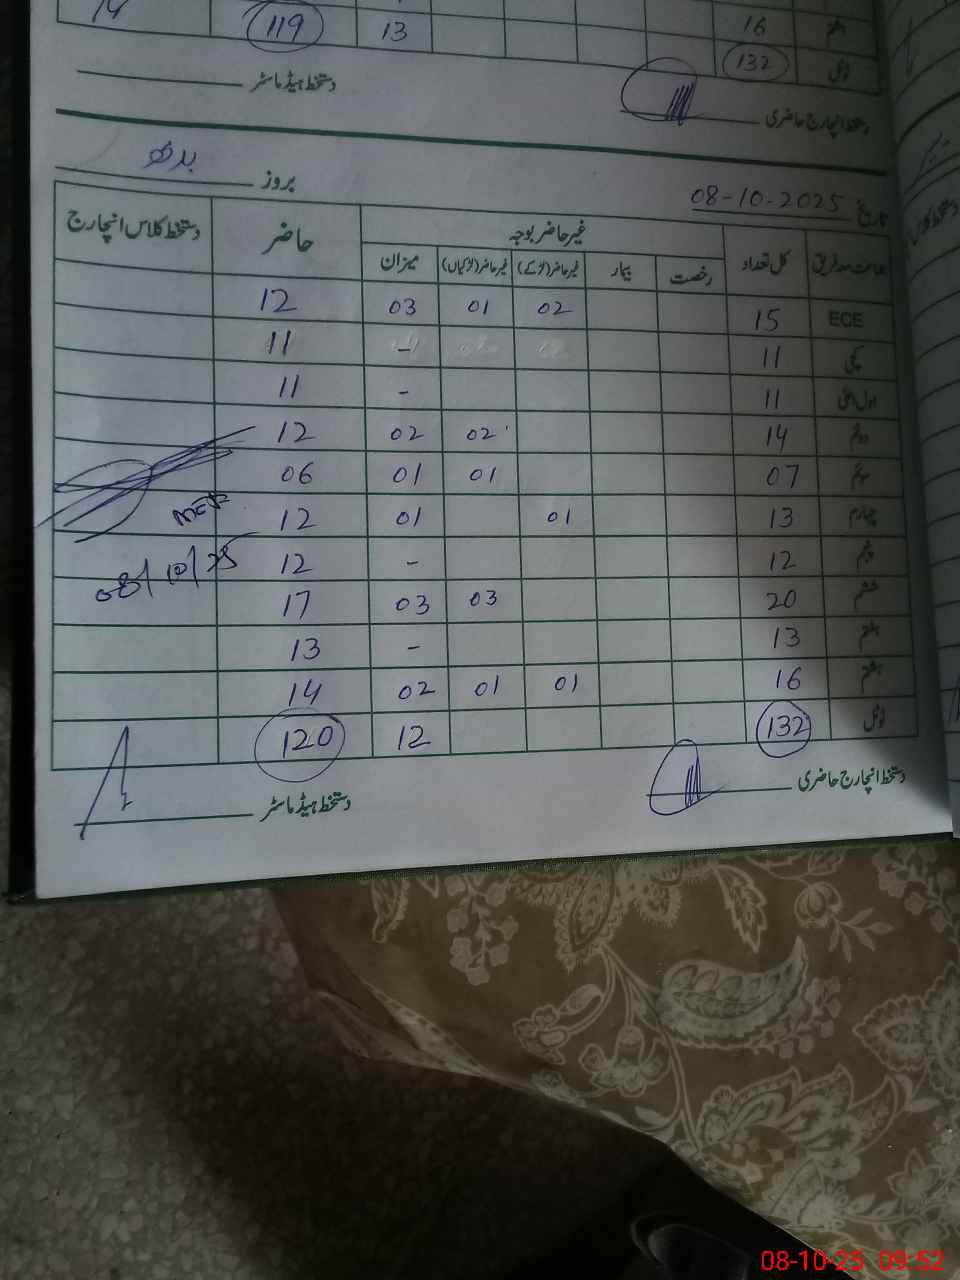 14 119 13 16 ہشتم
132 ٹوٹل
دستخط انچارج حاضری دستخط ہیڈ ماسٹر
تاریخ 08-10-2025 بروز بدھ
جماعت معہ فریق کل تعداد غیر حاضر بوجہ حاضر دستخط کلاس انچارج
رخصت بیمار غیر حاضر (لڑکے) غیر حاضر (لڑکیاں) میزان
ECE 15 02 01 03 12
کچی 11 - 11
اول اعلیٰ 11 - 11
دوئم 14 02 02 12
سوئم 07 01 01 06
چہارم 13 01 01 12
پنجم 12 - 12
ششم 20 03 03 17
ہفتم 13 - 13
ہشتم 16 01 01 02 14
ٹوٹل 132 12 120
08/10/25
دستخط انچارج حاضری دستخط ہیڈ ماسٹر
08-10-25 09:52